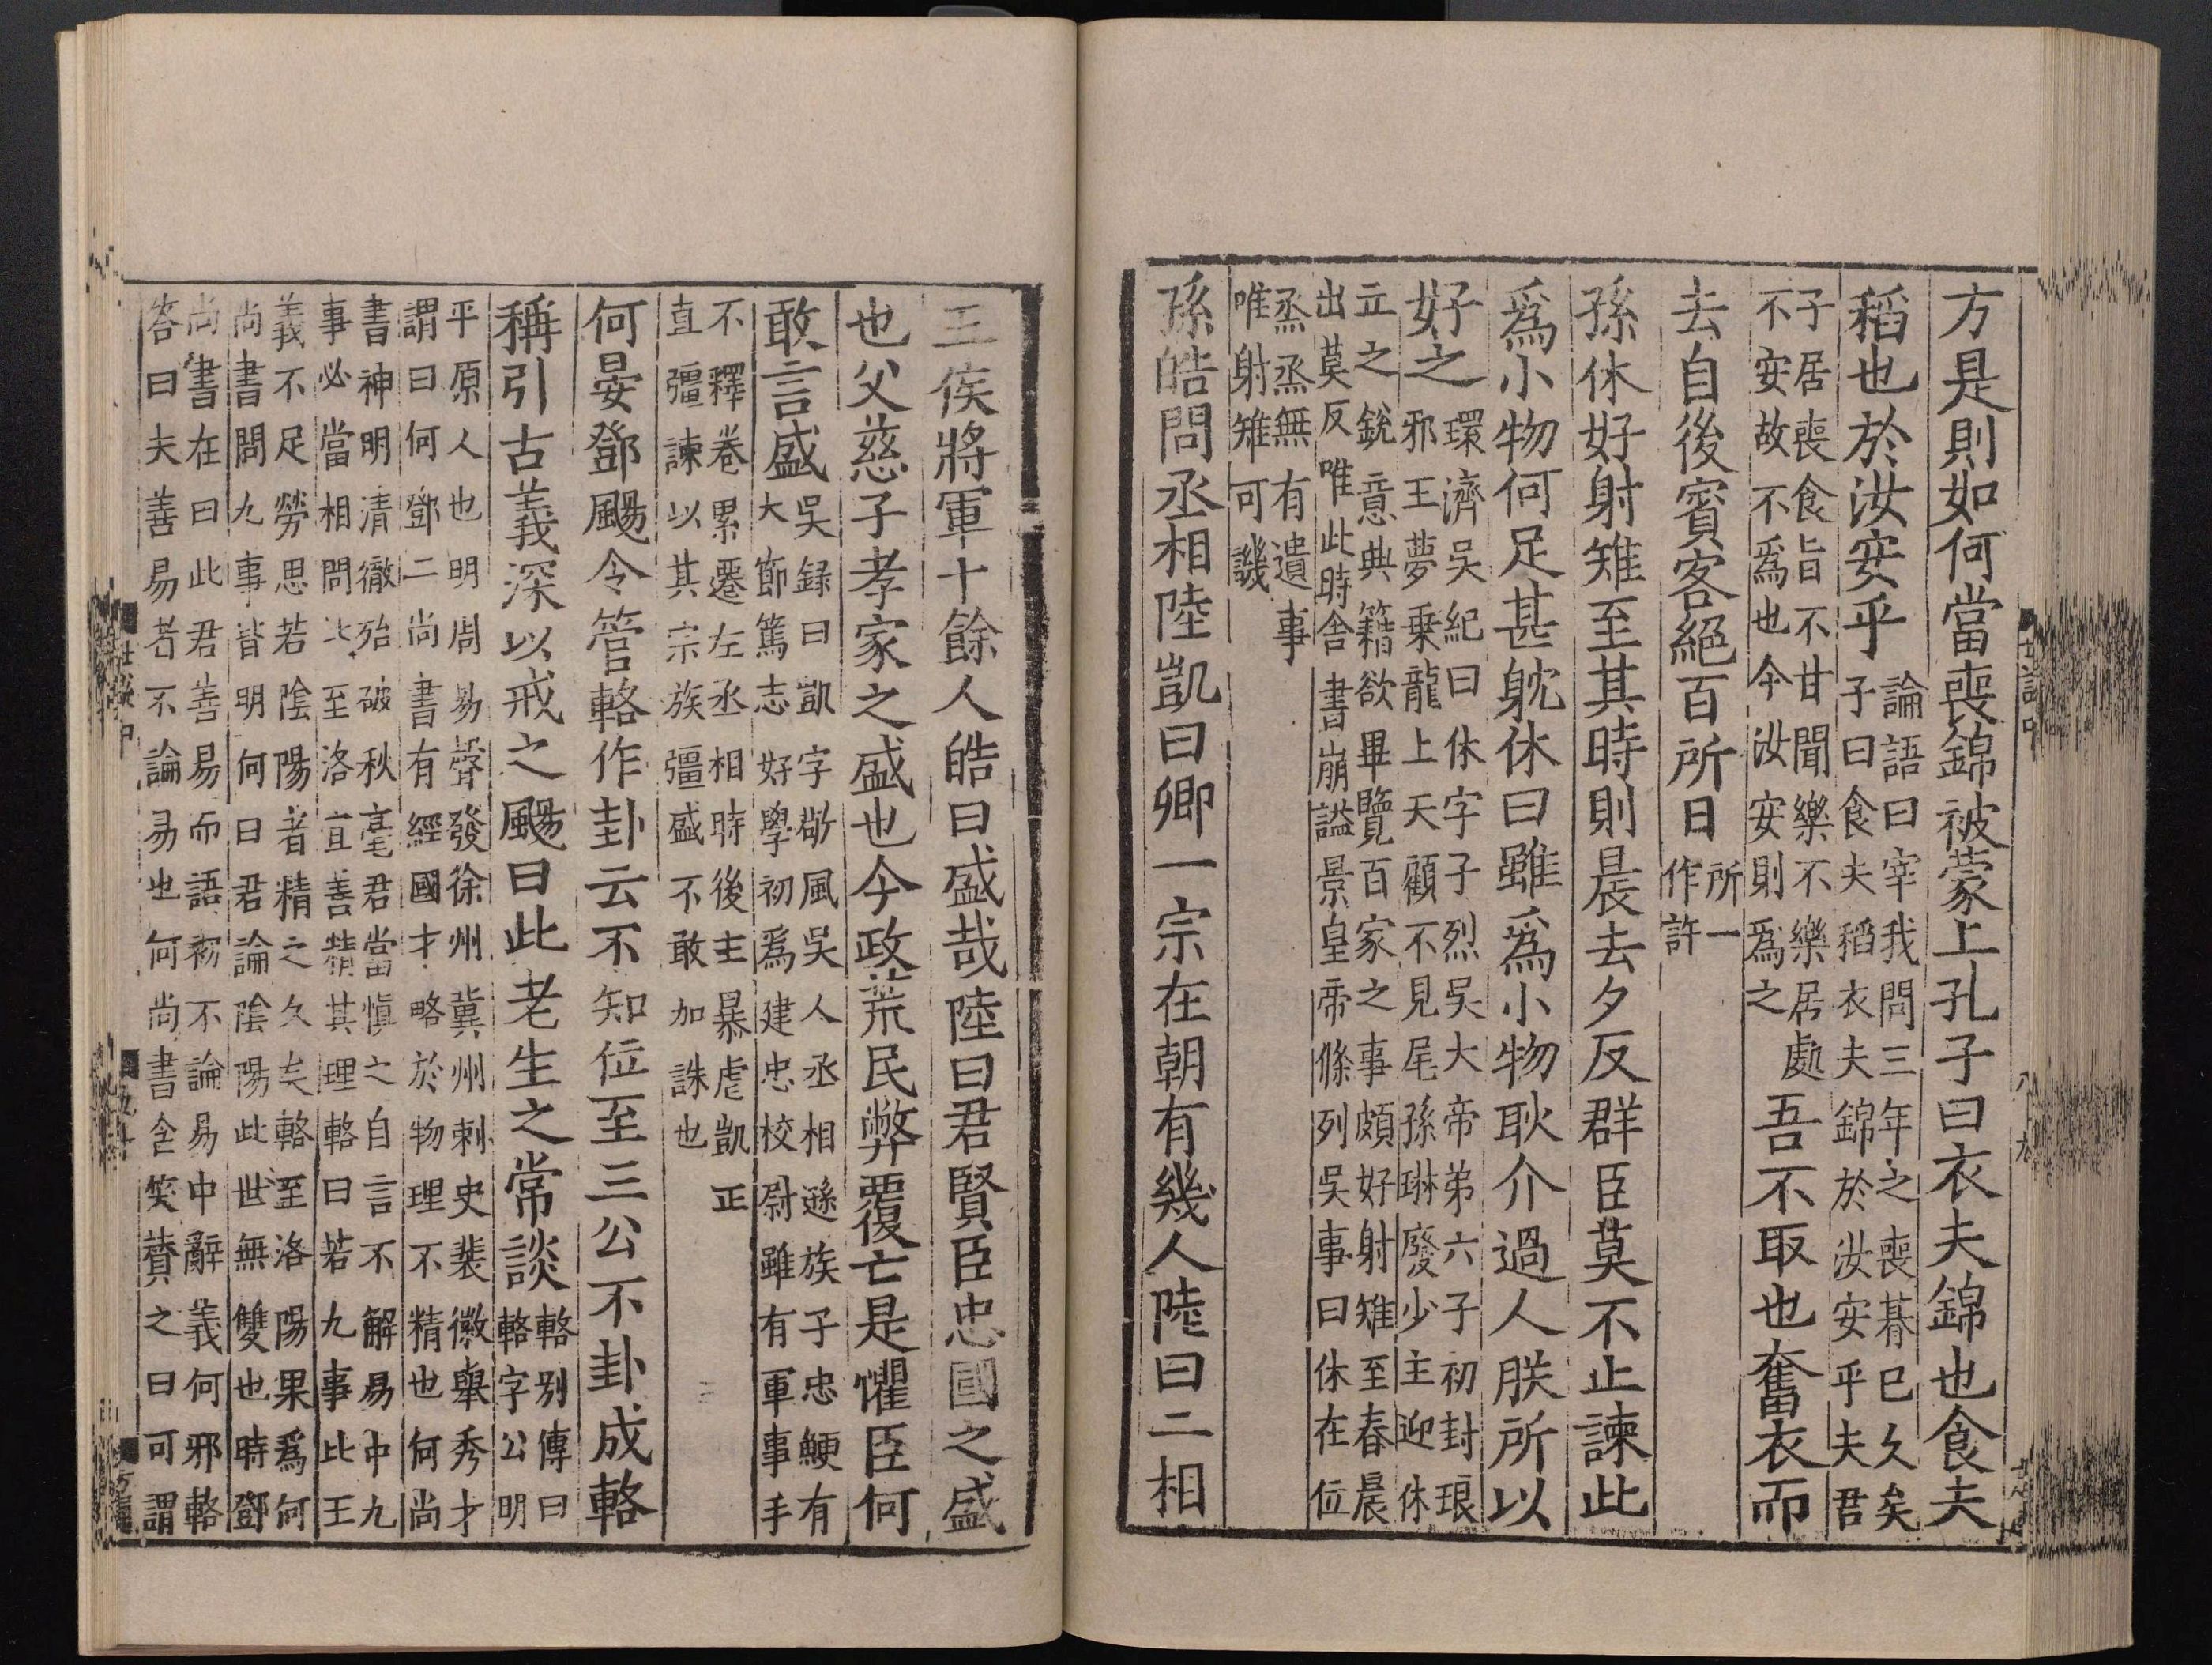 方是則如何當喪錦被蒙上孔子曰衣夫錦也食夫
稻也於汝安乎
論語曰宰我問三年之喪朞已久矣
子曰食夫稻衣夫錦於汝安乎夫君
子居喪食旨不甘聞樂不樂居處
不安故不爲也今汝安則爲之
吾不取也奮衣而
去自後賓客絕百所日
所一
作許
孫休好射雉至其時則晨去夕反群臣莫不止諫此
爲小物何足甚躭休曰雖爲小物耿介過人朕所以
好之
環濟吳紀曰休字子烈吳大帝弟六子初封琅
邪王夢乗龍上天顧不見尾孫琳廢少主迎休
立之銳意典籍欲畢覽百家之事頗好射雉至春晨
出莫反唯此時舍書崩謚景皇帝條列吳事曰休在位
烝烝無有遺事
唯射雉可譏
孫皓問丞相陸凱曰卿一宗在朝有幾人陸曰二相
侯將軍十餘人皓曰盛哉陸曰君賢臣忠國之盛
也父慈子孝家之盛也今政荒民弊覆亡是懼臣何
敢言盛
吳録曰凱字敬風吳人丞相遜族子忠鯁有
大節篤志好學初爲建忠校尉雖有軍事手
不釋卷累遷左丞相時後主暴虐凱正
直彊諫以其宗族彊盛不敢加誅也
何晏鄧颺令管輅作卦云不知位至三公不卦成輅
稱引古義深以戒之颺曰此老生之常談
輅別傳曰
輅字公明
平原人也明周易聲發徐州冀州刺史裴徽舉秀才
謂曰何鄧二尚書有經國才略於物理不精也何尚
書神明清徹殆破秋毫君當慎之自言不解易中九
事必當相問比至洛宜善精其理輅曰若九事比王
義不足勞思若陰陽者精之久矣輅至洛陽果爲何
尚書問九事皆明何曰君論陰陽此世無雙也時鄧
尚書在曰此君善易而語初不論易中辭義何邪輅
荅曰夫善易者不論易也何尚書含笑贊之曰可謂